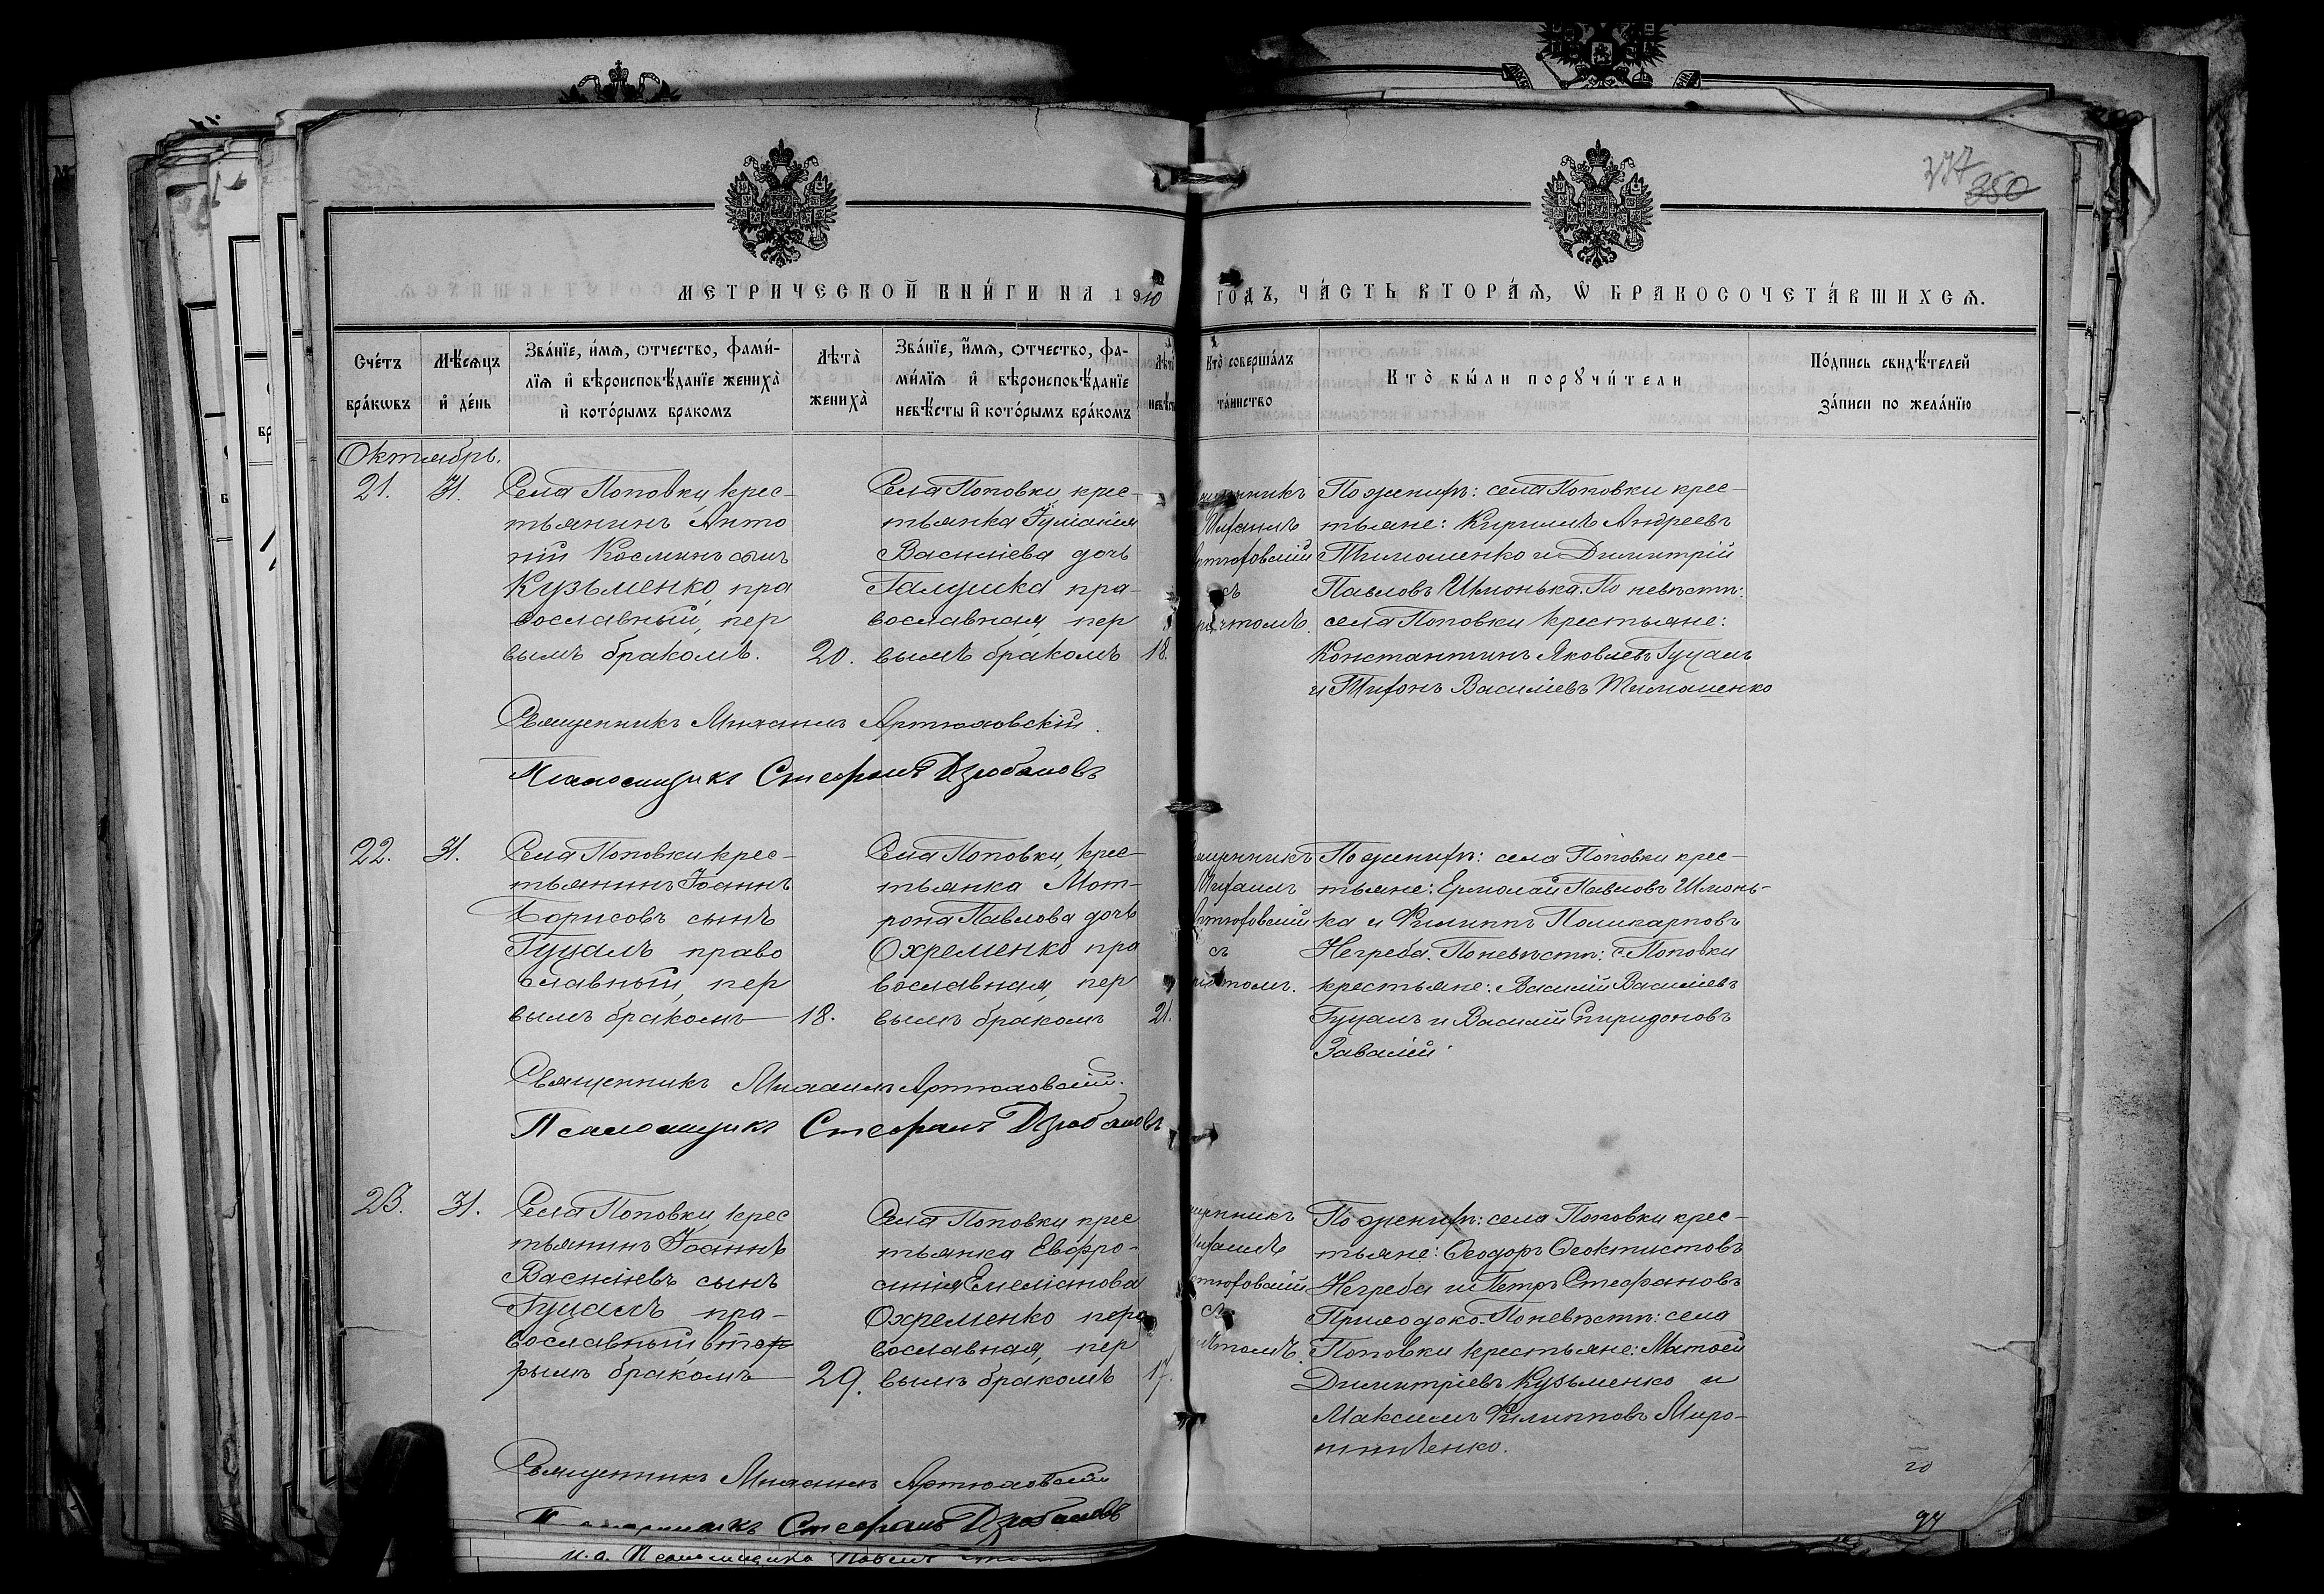 277
380
МЕТРИЧЕСКОЙ КНИ́ГИ НА 1910 ГОДЪ, ЧА́СТЬ ВТОРА́Ѧ, Ѡ БРАКОСОЧЕТА́ВШИХСѦ.
Сче́тъ бра́кωвъ
Мѣ́сѧцъ и҆ де́нь
Зва́нїе, и҆́мѧ, ѻтчество, фами́-
лїѧ и҆ вѣроисповѣ́данїе жениха̀
и҆ кото́рымъ бракомъ
Лѣта̀ жениха̀
Зва́нїе, и҆́мѧ, ѻтчество, фа-
ми́лїѧ и҆ вѣроисповѣ́данїе
невѣ́сты и҆ кото́рымъ бра́комъ
Кто̀ соверша́лъ та́инство
Кто̀ бы́ли порꙋчи́тели
По́дпись свидѣ́телей за́писи по жела́нїю
Октябрь.
21.
31.
Села Поповки, крес-
тьянинъ Анто
ній Косминъ сынъ
Кузьменко, пра
вославный, пер
вымъ бракомъ.
20.
Села Поповки, крес-
тьянка Іуліанія
Василіева дочь
Галушка пра-
вославная, пер
вымъ бракомъ
18.
Михаилъ
съ
По женихѣ: села Поповки крес-
тьяне: Кириллъ Андреевъ
Тимошенко и Димитрій
Павловъ Шмонька. По невѣстѣ:
села Поповки крестьяне:
Константинъ Яковлевъ Гуцалъ
и Тихонъ Василіевъ Тимошенко
Священникъ Михаилъ Артюховскій.
Псаломщикъ Стефанъ Дзюбановъ
22.
31.
Села Поповки крес-
тьянинъ Іоаннъ
Борисовъ сынъ
Гуцалъ право
славный, пер
вымъ бракомъ
18.
Села Поповки, крес-
тьянка Мат-
рона Павлова дочь
Охременко пра
вославная, пер
вымъ бракомъ
21.
Михаилъ
съ
По женихѣ: села Поповки крес-
тьяне: Ермолай Павловъ Шмонь-
ка и Филиппъ Поликарповъ
Негреба. По невѣстѣ: с. Поповки
крестьяне: Василій Василіевъ
Гуцалъ и Василій Спиридоновъ
Завалій.
Священникъ Михаилъ Артюховскій.
Псаломщикъ Стефанъ Дзюбановъ
23.
31.
Села Поповки крес
тьянинъ Іоаннъ
Василіевъ сынъ
Гуцалъ пра-
вославный, вто
рымъ бракомъ
29.
Села Поповки крес
тьянка Евфро-
синія Емеліанова
Охременко
вославная, пер
вымъ бракомъ
17.
съ
По женихѣ: села Поповки крес-
тьяне: Ѳеодоръ Ѳеоктистовъ
Негреба и Петръ Стефановъ
Приходоко. По невѣстѣ: села
Поповки крестьяне: Матѳей
Димитріевъ Кузьменко и
Максимъ Филипповъ Миро-
шниченко.
Священникъ Михаилъ Артюховскій
Псаломщикъ Стефанъ Дзюбановъ
и. о. Псаломщика
20
94